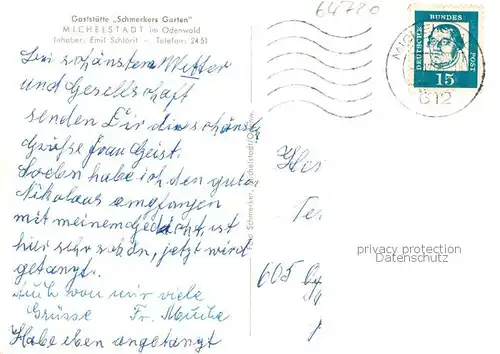 64720
Gaststätte „Schmerkers Garten"
MICHELSTADT im Odenwald
Inhaber: Emil Schlörit — Telefon: 2451
DEUTSCHE BUNDESPOST
15
MICH
612
Bei schönstem Wetter
und Gesellschaft
senden Dir die schönst
Grüße Frau Geist.
Soeben habe ich den guten
Nikolaus empfangen
mit meinem Gedicht, ist
hier sehr schön, jetzt wird
getanzt.
Auch von mir viele
Grüsse Fr. Mucke
Habe eben angetanzt
Foto Schmerker, Michelstadt/Odenw.
605
privacy protection
Datenschutz